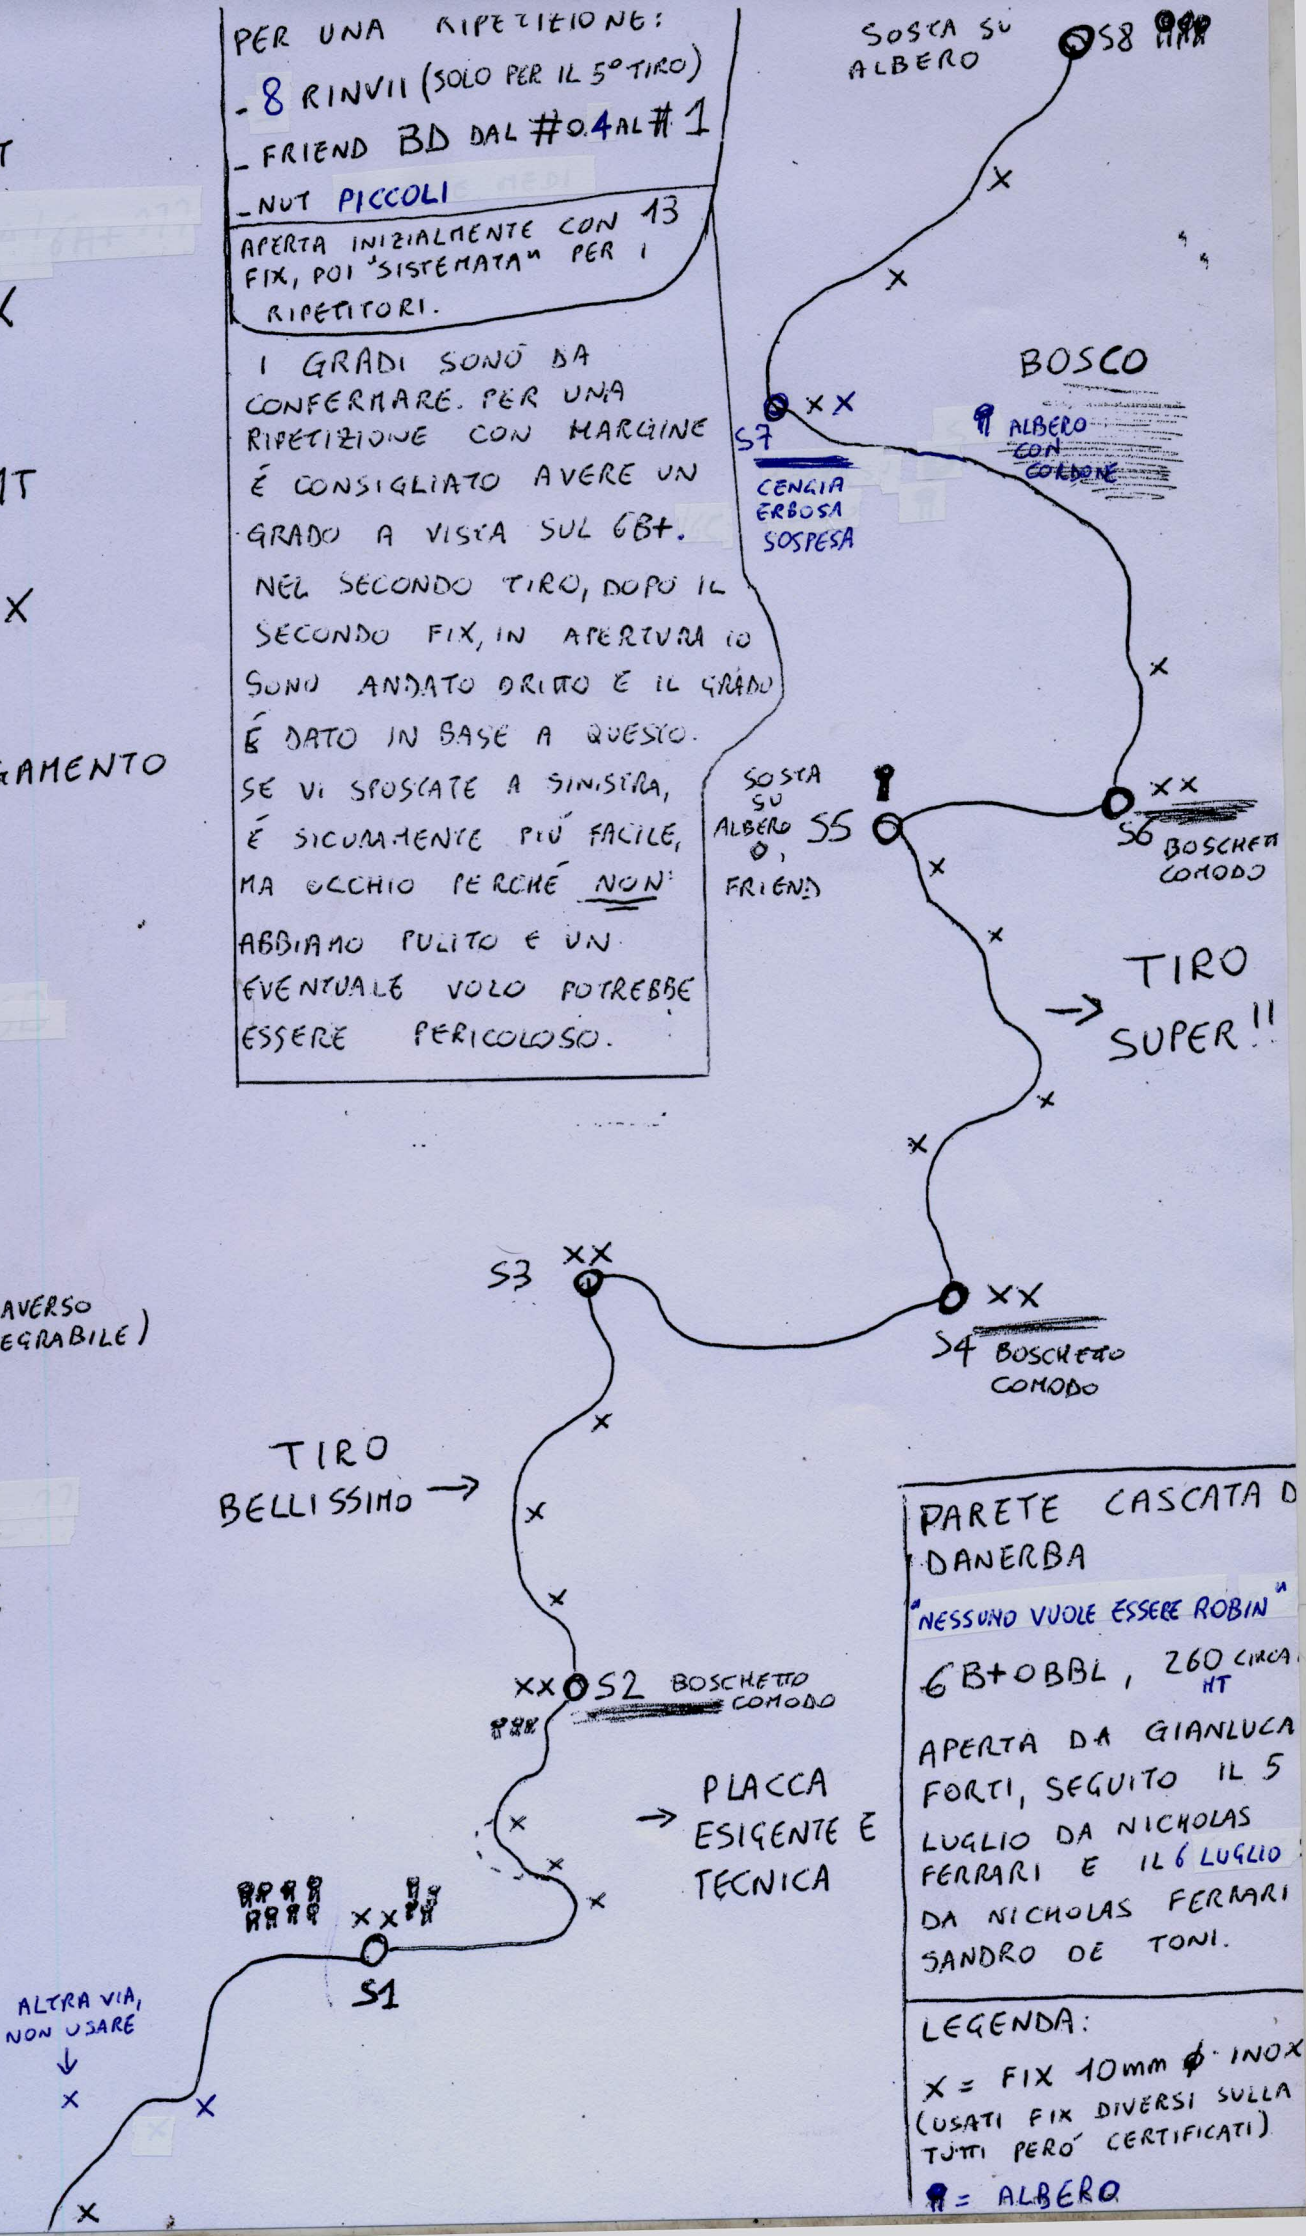 PER UNA RIPETIZIONE:
- 8 RINVII (SOLO PER IL 5° TIRO)
- FRIEND BD DAL #0.4 AL #1
- NUT PICCOLI
APERTA INIZIALMENTE CON 13
FIX, POI "SISTEMATA" PER I
RIPETITORI.
I GRADI SONO DA
CONFERMARE. PER UNA
RIPETIZIONE CON MARGINE
É CONSIGLIATO AVERE UN
GRADO A VISTA SUL 6B+.
NEL SECONDO TIRO, DOPO IL
SECONDO FIX, IN APERTURA IO
SONO ANDATO DRITTO E IL GRADO
É DATO IN BASE A QUESTO.
SE VI SPOSTATE A SINISTRA,
É SICURAMENTE PIÚ FACILE,
MA OCCHIO PERCHÉ NON
ABBIAMO PULITO E UN
EVENTUALE VOLO POTREBBE
ESSERE PERICOLOSO.
SOSTA SU
ALBERO
S8
X
X
BOSCO
X X
S7
CENGIA
ERBOSA
SOSPESA
ALBERO
CON
CORDONE
T
X
MT
X
GAMENTO
X
XX
S6
BOSCHETT
COMODO
SOSTA
SU
ALBERO
O,
FRIEND
S5
X
X
TIRO
SUPER!!
X
X
XX
S3
XX
S4
BOSCHETTO
COMODO
AVERSO
EGRABILE)
X
TIRO
BELLISSIMO
X
X
XX
S2
BOSCHETTO
COMODO
PLACCA
ESIGENTE E
TECNICA
X
X
X
XX
S1
ALTRA VIA,
NON USARE
X
X
X
PARETE CASCATA D
DANERBA
"NESSUNO VUOLE ESSERE ROBIN"
6B+OBBL, 260 CIRCA
MT
APERTA DA GIANLUCA
FORTI, SEGUITO IL 5
LUGLIO DA NICHOLAS
FERRARI E IL 6 LUGLIO
DA NICHOLAS FERRARI
SANDRO DE TONI.
LEGENDA:
X = FIX 10mm ϕ INOX
(USATI FIX DIVERSI SULLA
TUTTI PERÓ CERTIFICATI)
= ALBERO